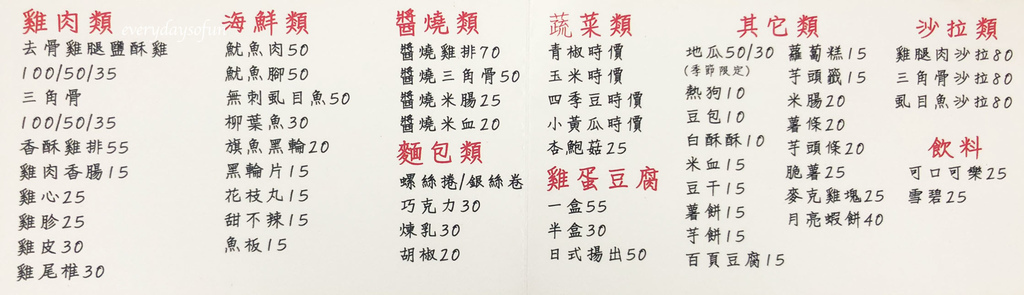 雞肉類
everydaysofun
去骨雞腿鹽酥雞
100/50/35
三角骨
100/50/35
香酥雞排55
雞肉香腸15
雞心25
雞胗25
雞皮30
雞尾椎30
海鮮類
魷魚肉50
魷魚腳50
無刺虱目魚50
柳葉魚30
旗魚黑輪20
黑輪片15
花枝丸15
甜不辣15
魚板15
醬燒類
醬燒雞排70
醬燒三角骨50
醬燒米腸25
醬燒米血20
麵包類
螺絲捲/銀絲卷
巧克力30
煉乳30
胡椒20
蔬菜類
青椒時價
玉米時價
四季豆時價
小黃瓜時價
杏鮑菇25
雞蛋豆腐
一盒55
半盒30
日式揚出50
其它類
地瓜50/30
(季節限定)
熱狗10
豆包10
白酥酥10
米血15
豆干15
薯餅15
芋餅15
百頁豆腐15
蘿蔔糕15
芋頭籤15
米腸20
薯條20
芋頭條20
脆薯25
麥克雞塊25
月亮蝦餅40
沙拉類
雞腿肉沙拉80
三角骨沙拉80
虱目魚沙拉80
飲料
可口可樂25
雪碧25